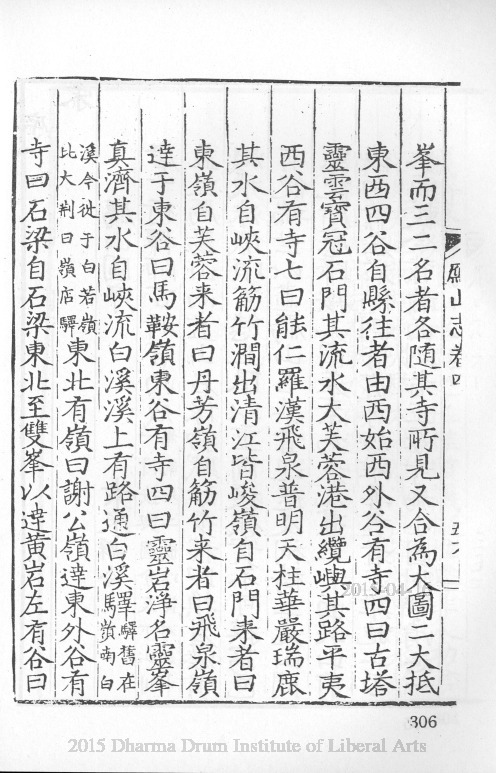 峯而三二名者各隨其寺所見又合為大圖二大抵
東西四谷自縣往者由西始西外谷有寺四曰古塔
靈雲寶冠石門其流水大芙蓉港出纜嶼其路平夷
西谷有寺七曰能仁羅漢飛泉普明天柱華嚴瑞鹿
其水自峽流筋竹澗出清江皆峻嶺自石門来者曰
東嶺自芙蓉来者曰丹芳嶺自筋竹来者曰飛泉嶺
達于東谷曰馬鞍嶺東谷有寺四曰靈岩淨名靈峯
真濟其水自峽流白溪溪上有路通白溪驛驛舊在白
嶺南
溪今徙于白若嶺
比大荆曰嶺店驛東北有嶺曰謝公嶺達東外谷有
寺曰石梁自石梁東北至雙峯以達黃岩左有谷曰
鴈山志卷四
306
2015 Dharma Drum Institute of Liberal Arts